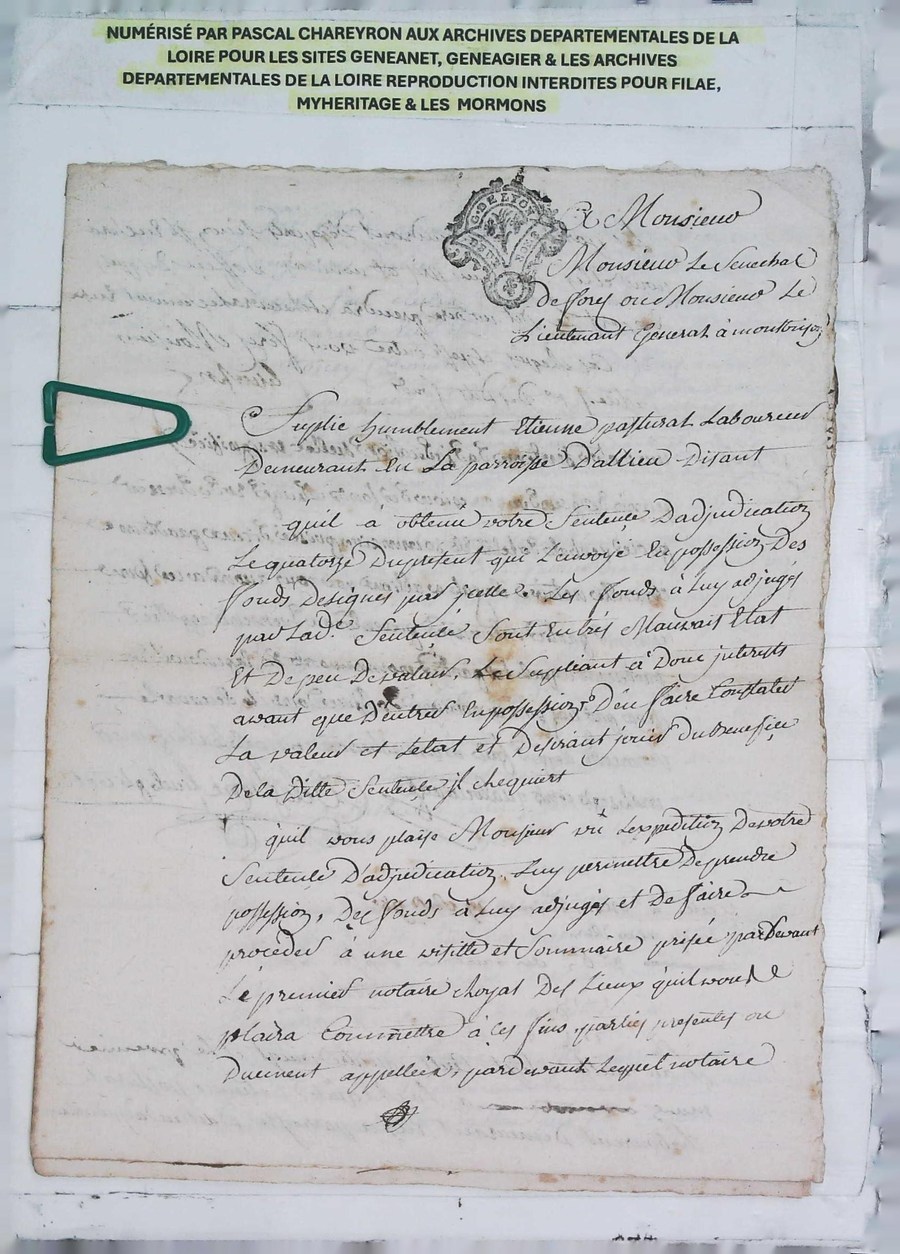 NUMÉRISÉ PAR PASCAL CHAREYRON AUX ARCHIVES DEPARTEMENTALES DE LA
LOIRE POUR LES SITES GENEANET, GENEAGIER & LES ARCHIVES
DEPARTEMENTALES DE LA LOIRE REPRODUCTION INTERDITES POUR FILAE,
MYHERITAGE & LES MORMONS
G. DE LYON
A Monsieur
Monsieur Le Senechal
de forej ou Monsieur Le
Lieutenant General à montbrison
Suplie humblement Etienne pastural Laboureur
Demeurant En La parroisse D'allieu Disant
qu'il à obtenu votre Sentence D'adjudication
Le quatorze Du present qui L'envoye En possession Des
fonds Designés par jcelle. Les fonds à Luy adjugés
par Lad.e Sentence Sont En très Mauvais Etat
Et De peu De valeur, Le Suppliant a Donc jnterests
avant que D'entrer En possession D'en faire Constater
La valeur et L'etat et Desirant jouir Du Benefice
De la Ditte Sentence jl Requiert
qu'il vous plaise Monsieur vu L'expedition De votre
Sentence D'adjudication Luy permettre De prendre
possession, Des fonds à Luy adjugés et De faire
proceder à une visitte et Sommaire prisée par Devant
Le premier notaire Royal Des Lieux qu'il vous
plaira Commettre à Ces fins parties presentes ou
Duement appellées, par devant Lequel notaire